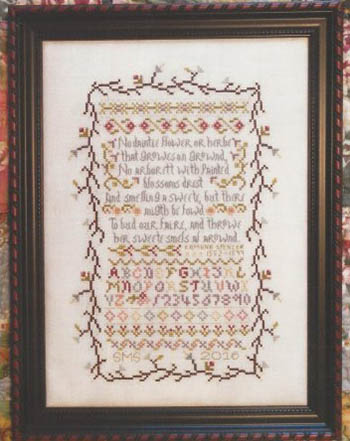 No daintie flower or herbe
that growes on grownd,
No arborett with painted
blossoms drest
And smelling sweete, but there
might be fownd
To bud out faire, and throwe
her sweete smels al arownd.
Edmund Spenser
1552-1599
ABCDEFGHIJKL
MNOPQRSTUVWX
YZ 1234567890
SMS 2016